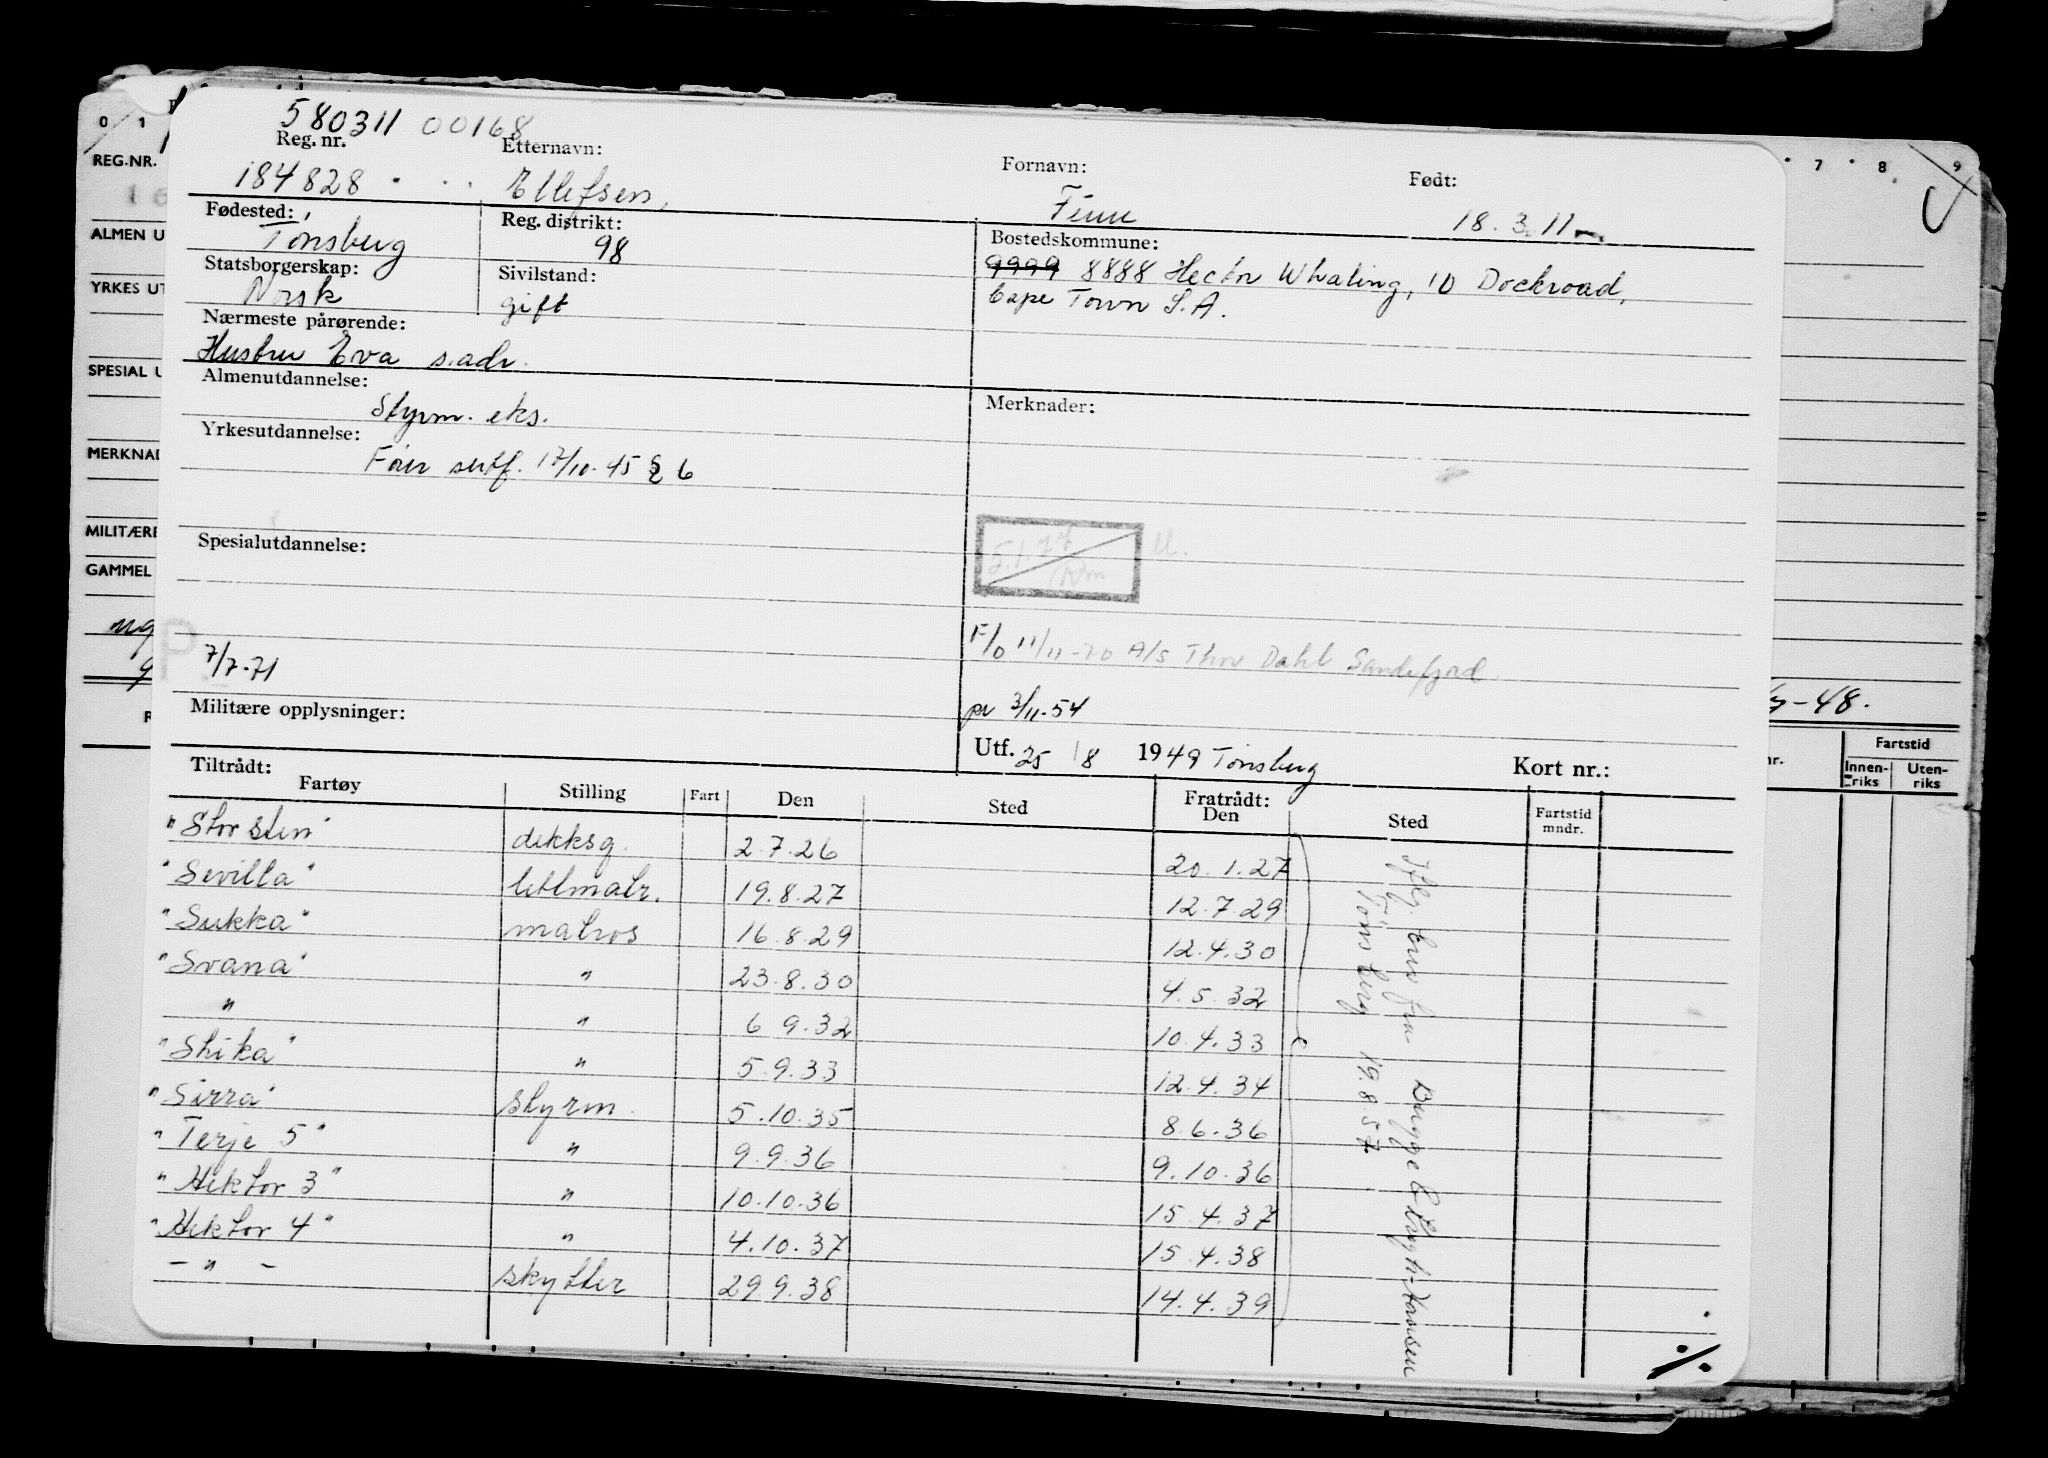 580311 00168
Reg. nr. Etternavn: Fornavn: Født:
184828 Ellefsen, Finn 18.3.11
Fødested: Reg. distrikt: Bostedskommune:
Tønsberg 98 9999 8888 Hector Whaling, 10 Dockroad,
Statsborgerskap: Sivilstand: Cape Town S.A.
Norsk gift
Nærmeste pårørende:
Hustru Eva s.adr.
Almenutdannelse: Merknader:
Styrm. eks.
Yrkesutdannelse:
sertf. 17/10-45 § 6
Spesialutdannelse:
5.1.77
F/o 11/11-70 A/s Thor Dahl Sandefjord.
7/7-71
Militære opplysninger: pr 3/11-54
Utf. 25/8 1949 Tønsberg Kort nr.:
Tiltrådt: Fratrådt:
Fartøy Stilling Fart Den Sted Den Sted Fartstid mndr.
"Storsten" dekksg. 2.7.26 20.1.27
"Sevilla" lettmatr. 19.8.27 12.7.29
"Sukka" matros 16.8.29 12.4.30
"Svana" " 23.8.30 4.5.32
" " 6 9.32 10.4.33
"Shika" " 5.9.33 12.4.34
"Sirra" styrm. 5.10.35 8.6.36
"Terje 5" " 9.9.36 9.10.36
"Hektor 3" " 10.10.36 15.4.37
"Hektor 4" " 4.10.37 15.4.38
- " - skytter 29.9.38 14.4.39
Iflg. brev fra Bugge & Krogh-Hansen
Tønsberg 19.8.57
%
0 1
REG.NR.
ALMEN U
YRKES UT
SPESIAL U
MERKNAD
MILITÆRE
GAMMEL
7 8 9
-48.
nr. Fartstid
Innen-riks Uten-riks